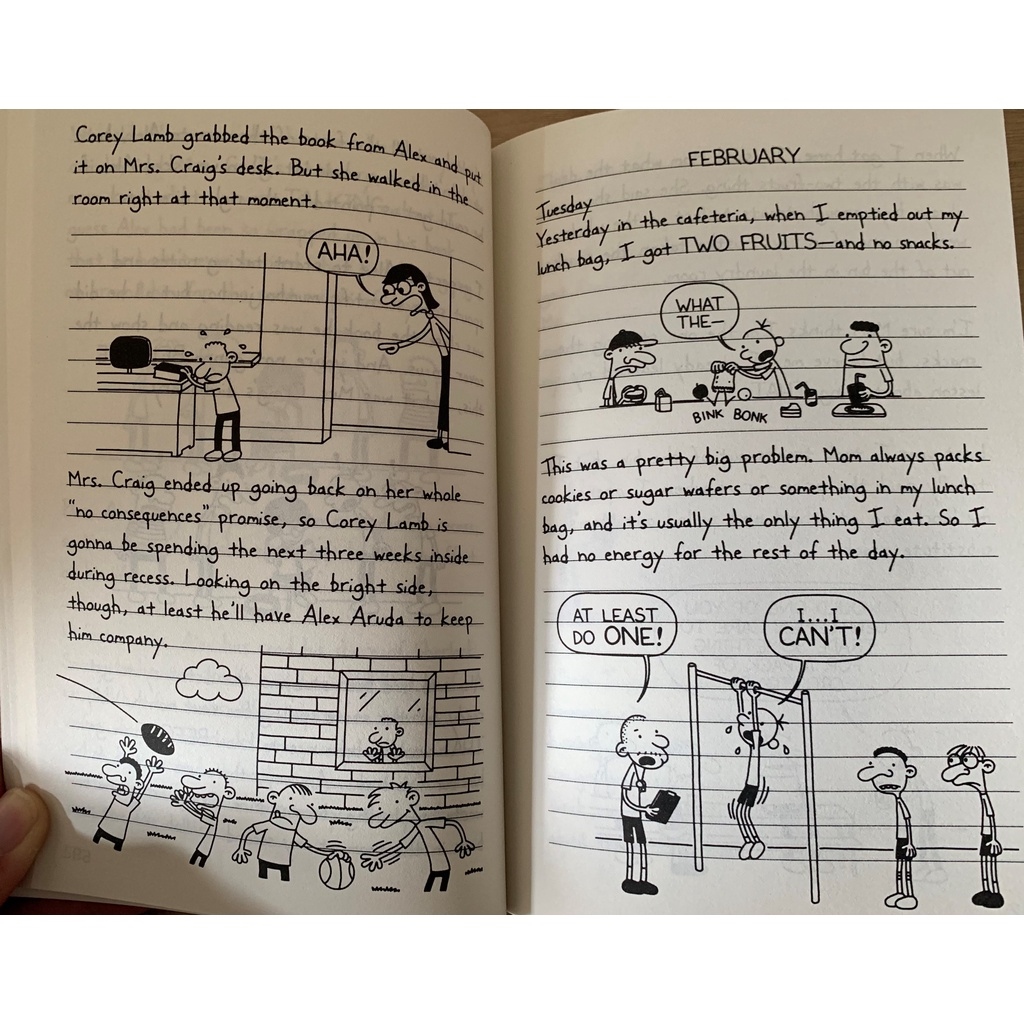 Corey Lamb grabbed the book from Alex and put
it on Mrs. Craig's desk. But she walked in the
room right at that moment.
AHA!
Mrs. Craig ended up going back on her whole
"no consequences" promise, so Corey Lamb is
gonna be spending the next three weeks inside
during recess. Looking on the bright side,
though, at least he'll have Alex Aruda to keep
him company.
FEBRUARY
Tuesday
Yesterday in the cafeteria, when I emptied out my
lunch bag, I got TWO FRUITS—and no snacks.
WHAT
THE—
BINK BONK
This was a pretty big problem. Mom always packs
cookies or sugar wafers or something in my lunch
bag, and it's usually the only thing I eat. So I
had no energy for the rest of the day.
AT LEAST
DO ONE!
I...I
CAN'T!